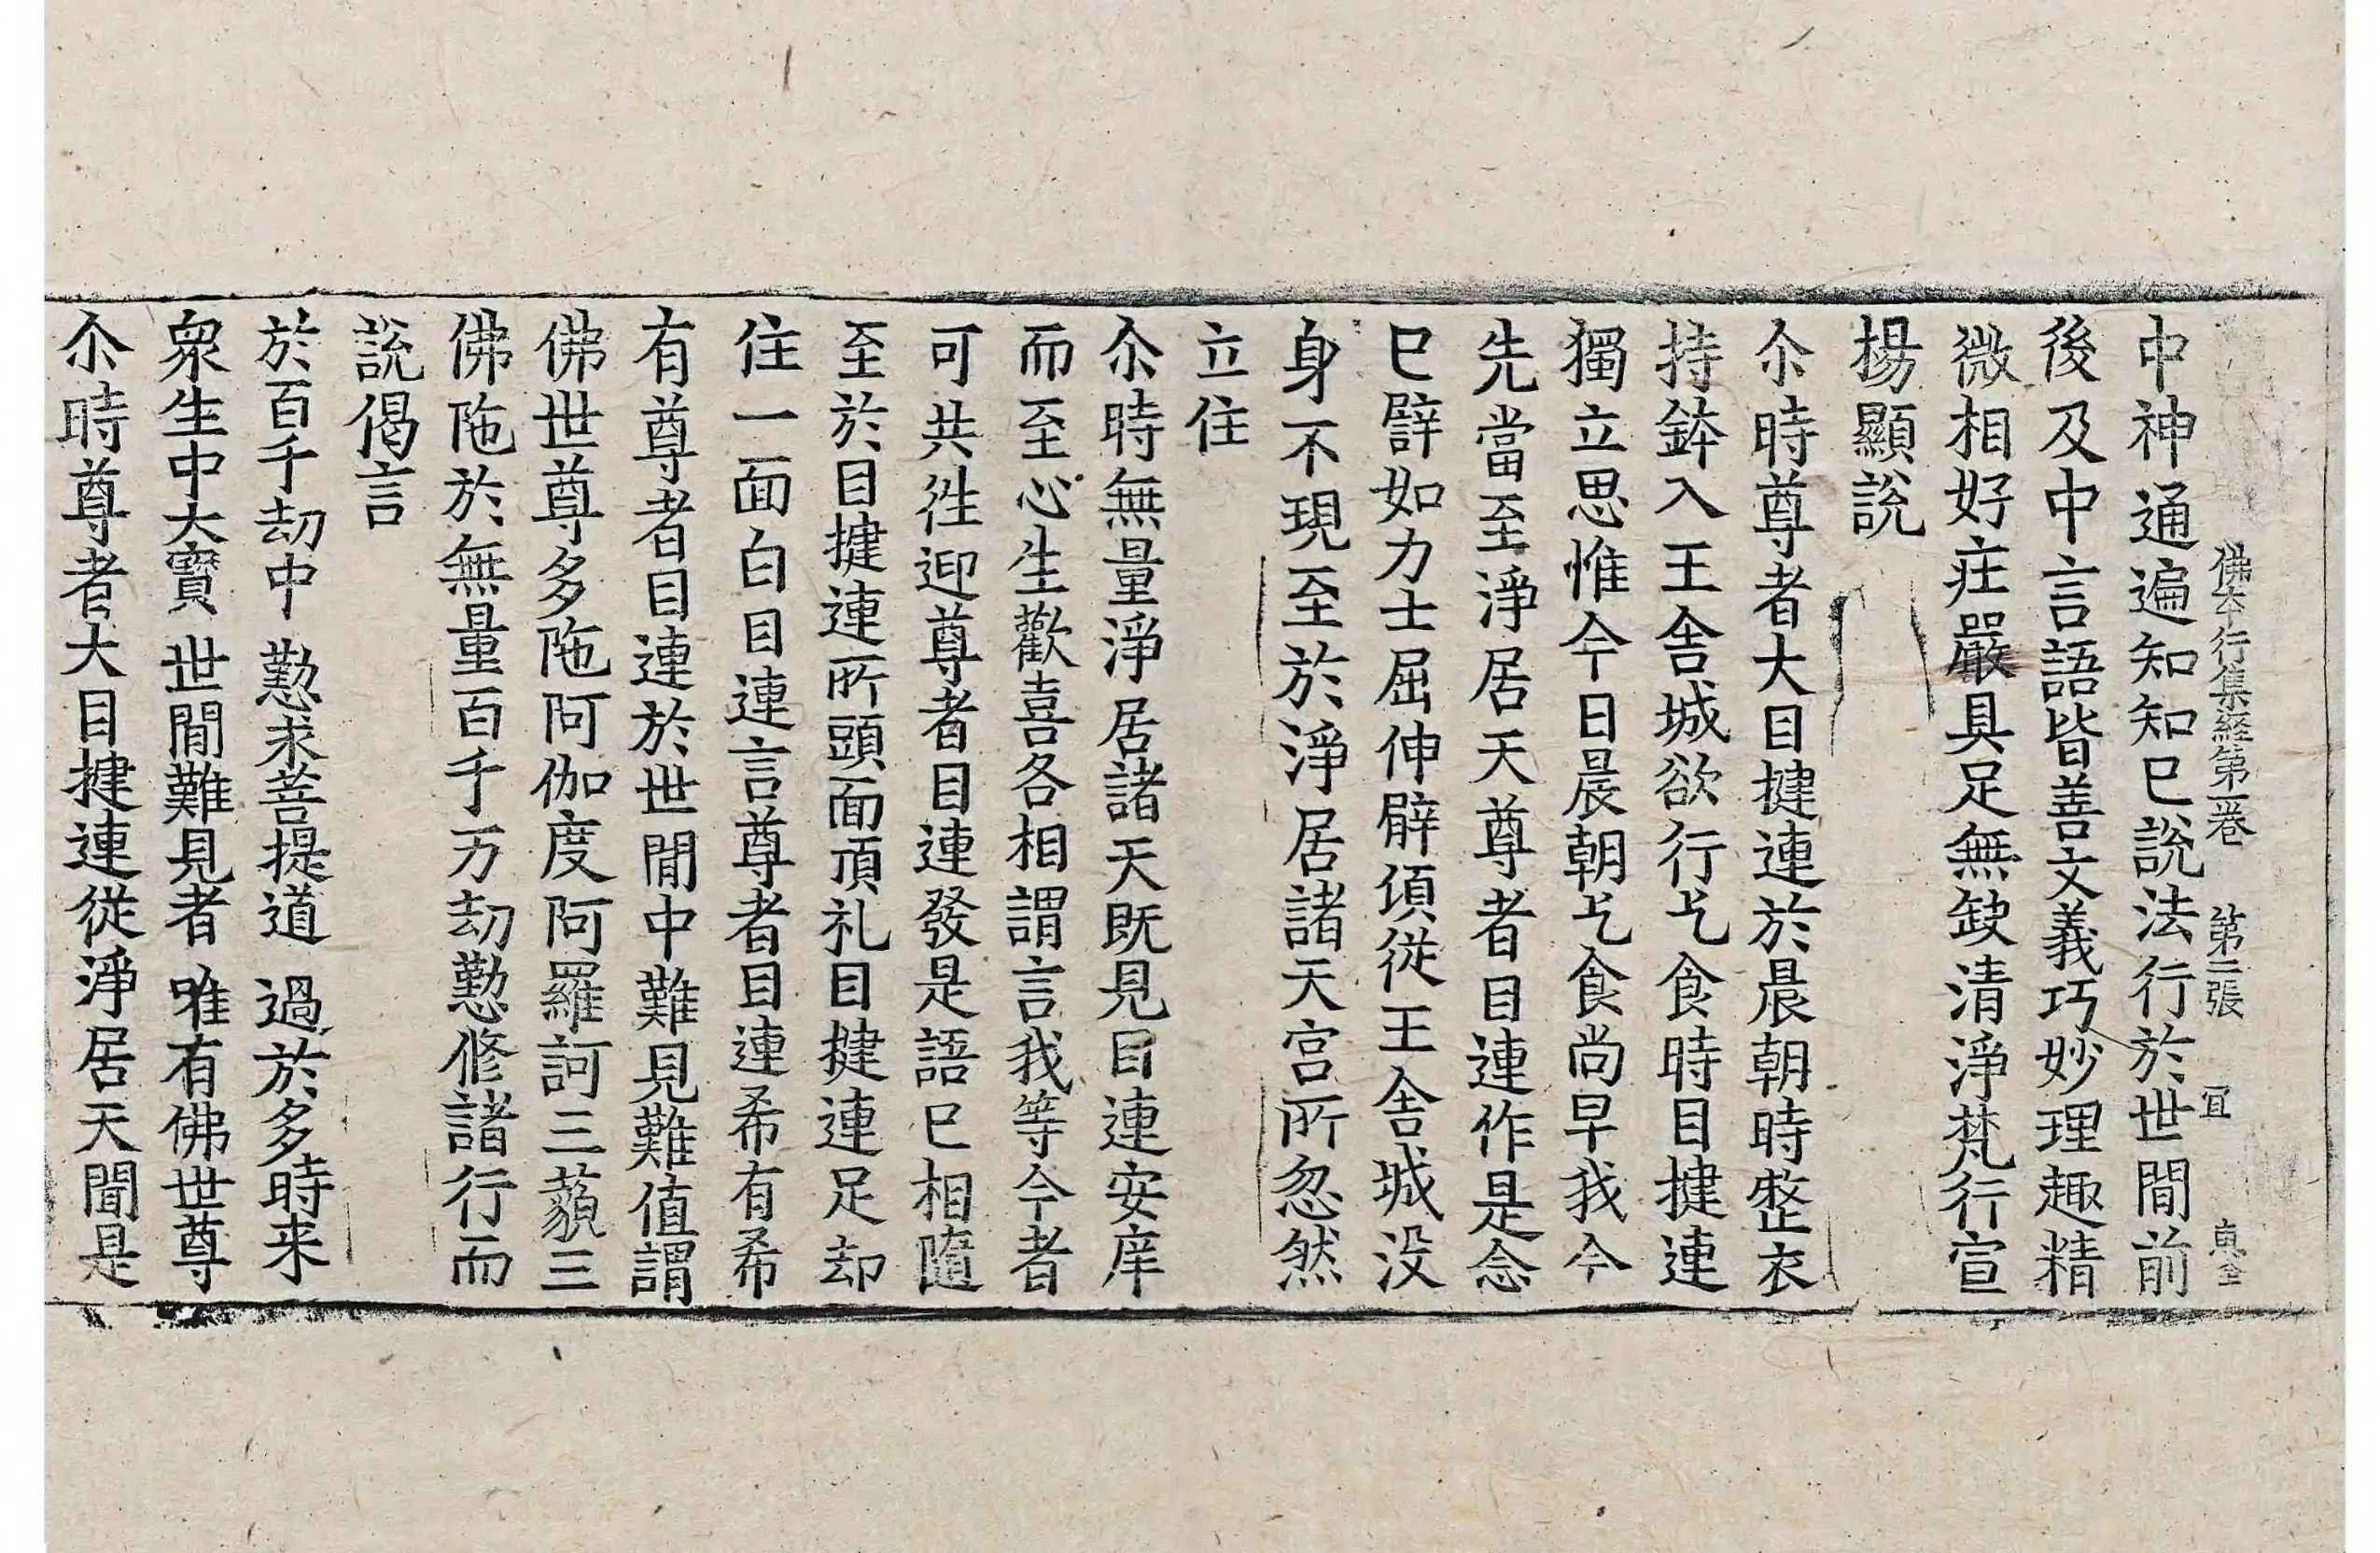 佛本行集経第一卷 第二張 冝
中神通遍知知已說法行於世間前
後及中言語皆善文義巧妙理趣精
微相好㽵嚴具足無缺清淨梵行宣
揚顯說
尒時尊者大目揵連於晨朝時整衣
持鉢入王舍城欲行乞食時目揵連
獨立思惟今日晨朝乞食尚早我今
先當至淨居天尊者目連作是念
已譬如力士屈伸臂傾從王舍城没
身不現至於淨居諸天宫所忽然
立住
尒時無量淨居諸天既見目連安庠
而至心生歡喜各相謂言我等今者
可共徃迎尊者目連發是語已相隨
至於目揵連所頭面頂礼目揵連足却
住一面白目連言尊者目連希有希
有尊者目連於世間中難見難值謂
佛世尊多陁阿伽度阿羅訶三藐三
佛陁於無量百千万劫懃修諸行而
說偈言
於百千劫中 懃求菩提道 過於多時来
衆生中大寶 世間難見者 唯有佛世尊
尒時尊者大目揵連從淨居天聞是